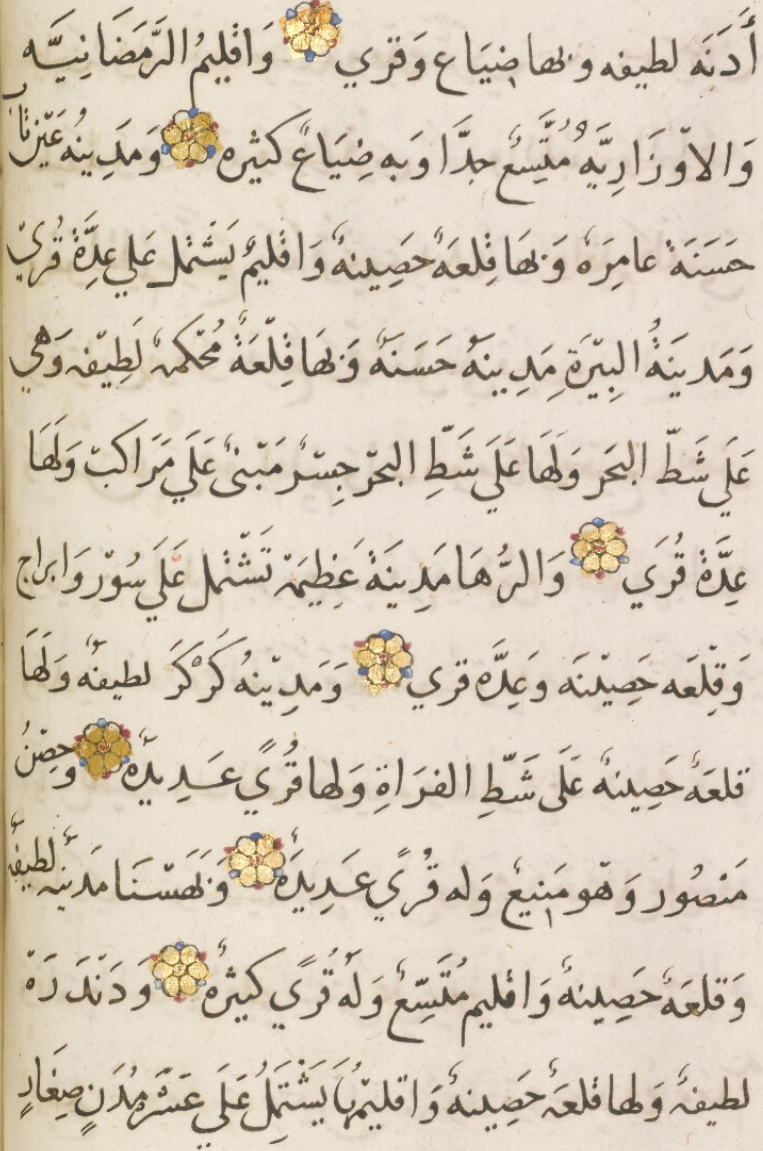 أَدَنَه لطيفه وبها ضِيَاع وَقري وَاقليمُ الرَّمَضَانِيَّه
وَالاوْزَارِيَّه مُتَّسِعٌ جدَّا وَبه ضِيَاعٌ كثيره وَمَدِينُه عَيْنتَا
حَسَنَة عامِرَه وَبهَا قلعَهٌ حصِينهٌ وَاقليمٌ يَشتمل عَلي عِدَّة قُريً
وَمَدينَةُ البِيْرَة مَدِينَهٌ حَسَنَهٌ وَبهَا قلْعَةٌ مُحْكمهٌ لَطِيْفه وَهي
عَلَي شَطّ البَحَر وَلَهَا عَلَي شَطِّ البحْر جسْرٌ مَبْنىٌ عَلَي مَرَاكبْ وَلَهَا
عِدَّةُ قُرَي وَالرُّهَا مَدِينَةٌ عَظِيْمَةْ تَشْتمل عَلَي سُوْر وَابراج
وَقلْعَه حَصِيْنَه وَعِدَّه قري وَمَدِيْنهُ كَرْكَرَ لطيفهٌ وَلَهَا
قلعَهٌ حَصِينهٌ عَلَى شَطِّ الفرَاةِ وَلها قُرًي عَدِيدَهٌ وَحصْنُ
مَنْصُور وَهْو مَنِيعٌ وَله قُرًي عَدِيدَهٌ وَبَهَسْنَا مَدينهٌ لطيفهٌ
وَقلعَهٌ حَصِينهٌ وَاقليم مُتَّسِعٌ وَلَهُ قُرًي كثيرُهٌ وَدَنْدَرَهْ
لطيفهٌ وَلها قلعَهٌ حَصِينهٌ وَاقليمُهَا يَشْتَمِلُ عَلَي عَشْرَ مُدُنٍ صِغَارٍ